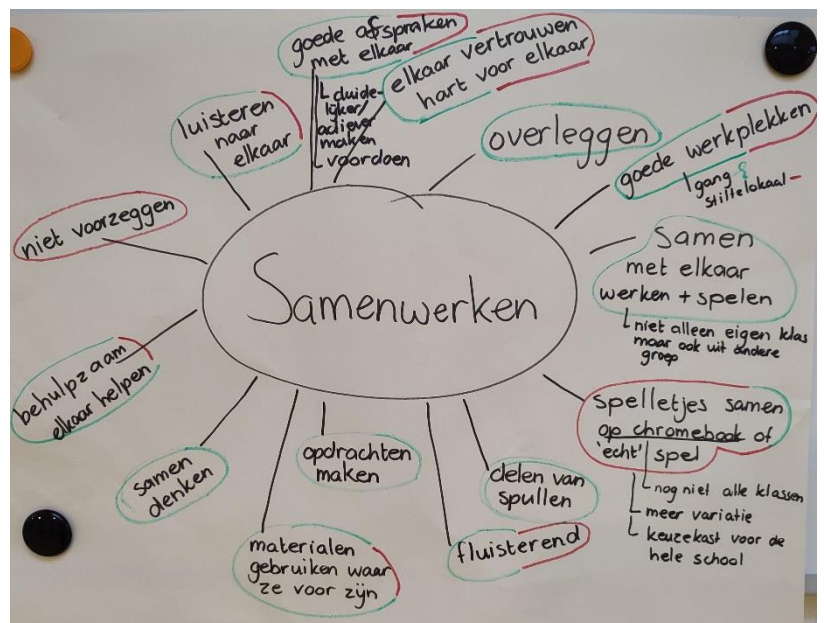 goede afspraken
met elkaar
duide-
lijker/
actiever
maken
voordoen
elkaar vertrouwen
hart voor elkaar
overleggen
goede werkplekken
gang &
stiltelokaal
Samen
met elkaar
werken + spelen
niet alleen eigen klas
maar ook uit andere
groep
spelletjes samen
op chromebook of
'echt' spel
nog niet alle klassen
meer variatie
keuzekast voor de
hele school
delen van
spullen
fluisterend
opdrachten
maken
materialen
gebruiken waar
ze voor zijn
samen
denken
behulpzaam
elkaar helpen
niet voorzeggen
luisteren
naar
elkaar
Samenwerken